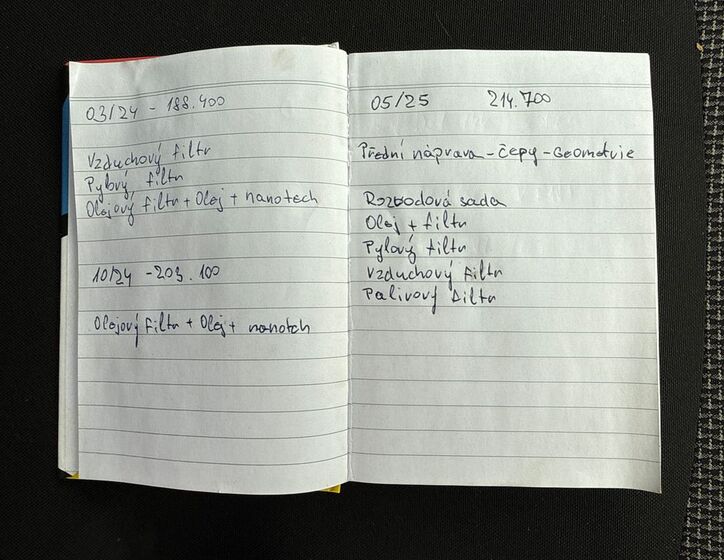 03/24 - 188.400
Vzduchový filtr
Pylový filtr
Olejový filtr + Olej + nanotech
10/24 - 203.100
Olejový filtr + Olej + nanotch
05/25 214.700
Přední náprava - čepy - Geometrie
Rozvodová sada
Olej + filtr
Pylový filtr
Vzduchový filtr
Palivový filtr